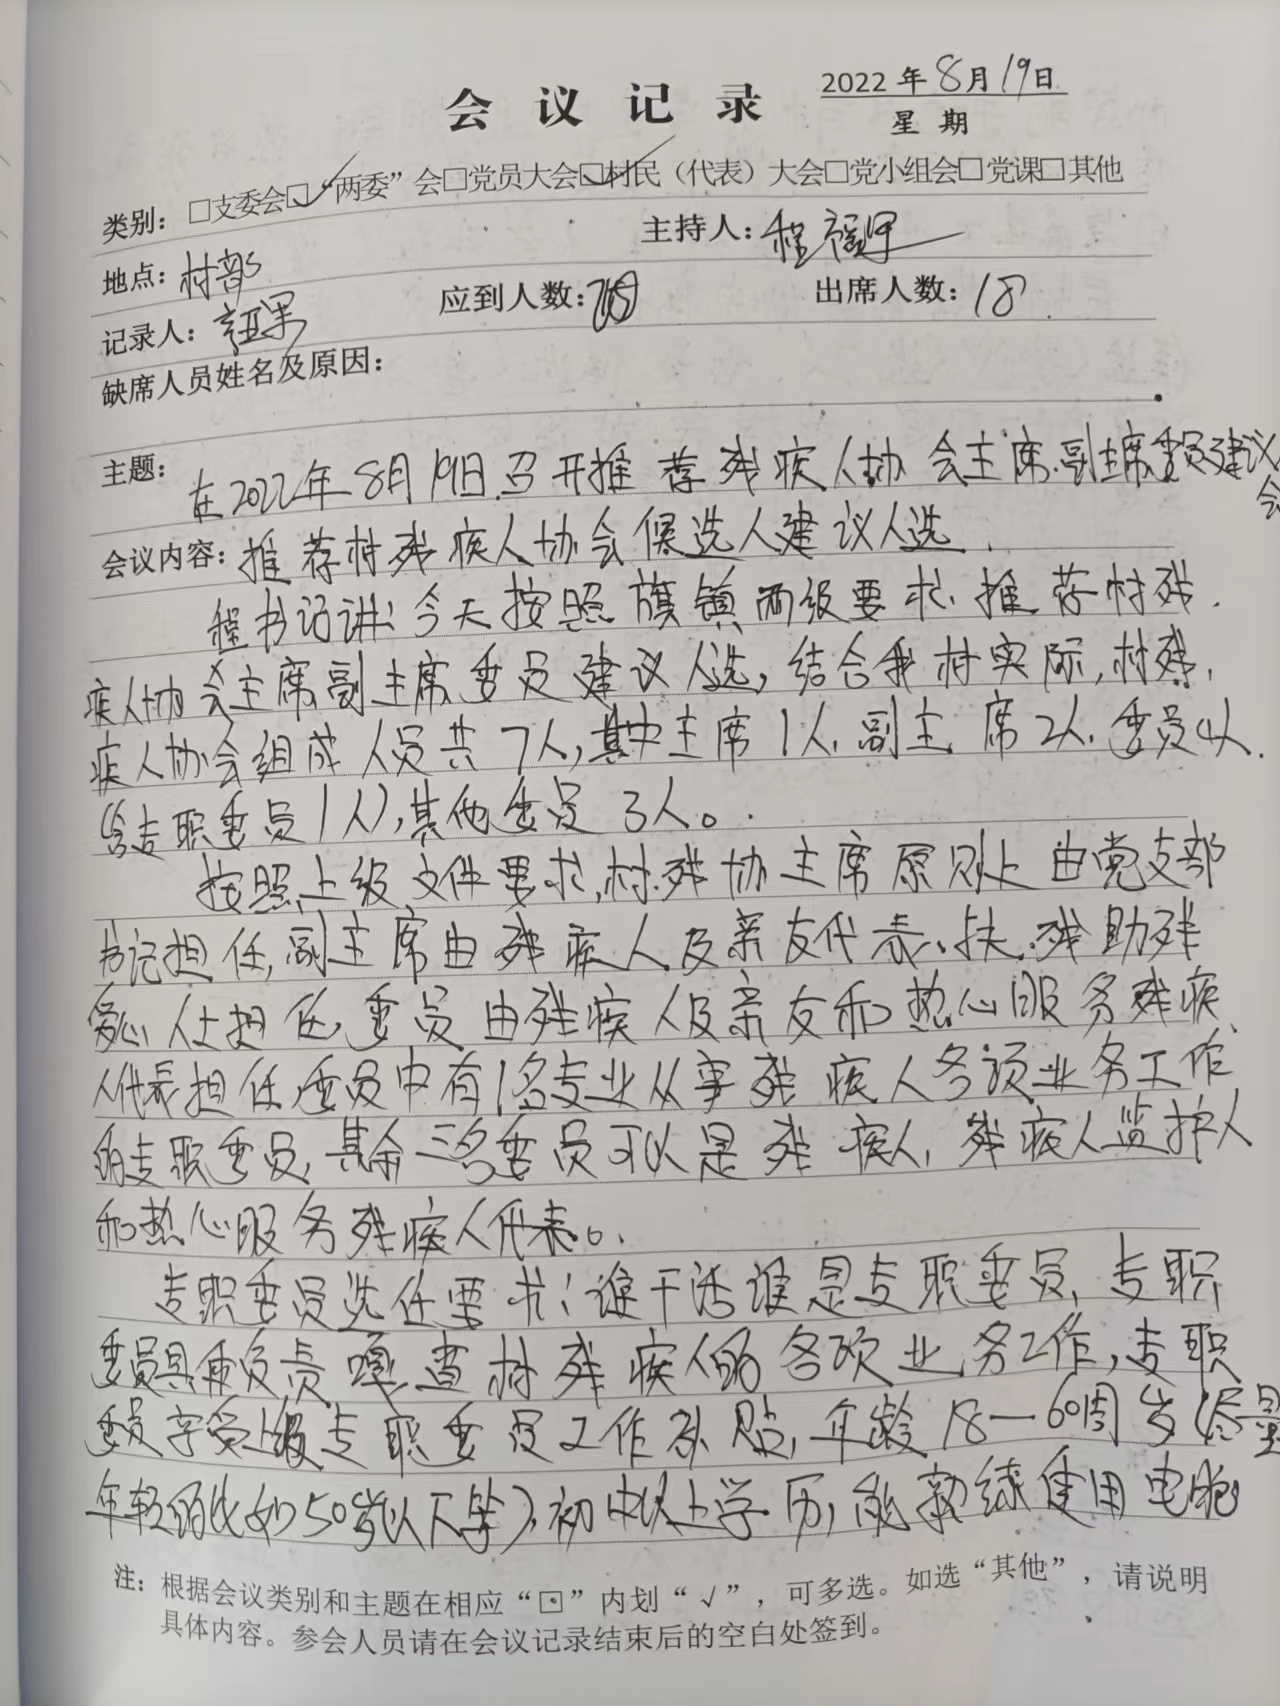 会议记录
2022年8月19日
星期
类别：□支委会☑“两委”会□党员大会☑村民（代表）大会□党小组会□党课□其他
地点：村部 主持人：程福军
记录人： 应到人数： 出席人数：18
缺席人员姓名及原因：
主题：在2022年8月19日召开推荐残疾人协会主席、副主席、委员建议
会
会议内容：推荐村残疾人协会候选人建议人选.
程书记讲：今天按照旗镇两级要求，推荐村残
疾人协会主席、副主席、委员建议人选，结合我村实际，村残，
疾人协会组成人员共7人，其中主席1人，副主席2人，委员4人.
(含专职委员1人)，其他委员3人。
按照上级文件要求，村残协主席原则上由党支部
书记担任，副主席由残疾人及亲友代表、扶残助残
爱心人士担任，委员由残疾人及亲友和热心服务残疾
人代表担任，委员中有1名专业从事残疾人各项业务工作
的专职委员，其余三名委员可以是残疾人，残疾人监护人
和热心服务残疾人代表。
专职委员选任要求：谁干活谁是专职委员，专职
委员具体负责嘎查村残疾人的各项业务工作，专职
委员享受上级专职委员工作补贴，年龄18—60周岁(尽量
年轻的比如50岁以下等)，初中以上学历，能熟练使用电脑
注：根据会议类别和主题在相应“⊡”内划“√”，可多选。如选“其他”，请说明
具体内容。参会人员请在会议记录结束后的空白处签到。